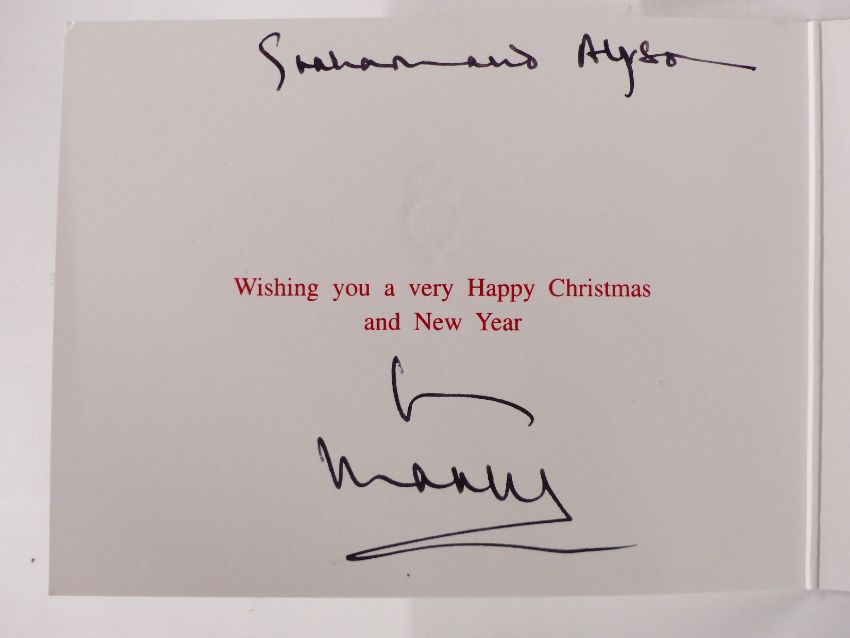 Graham and Alyson
Wishing you a very Happy Christmas
and New Year
from